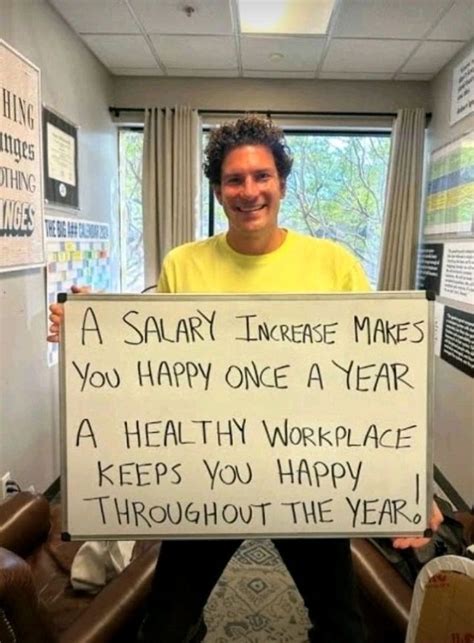 HING
anges
OTHING
ANGES
THE BIG A## CALENDAR
A SALARY INCREASE MAKES
YOU HAPPY ONCE A YEAR
A HEALTHY WORKPLACE
KEEPS YOU HAPPY
THROUGHOUT THE YEAR!